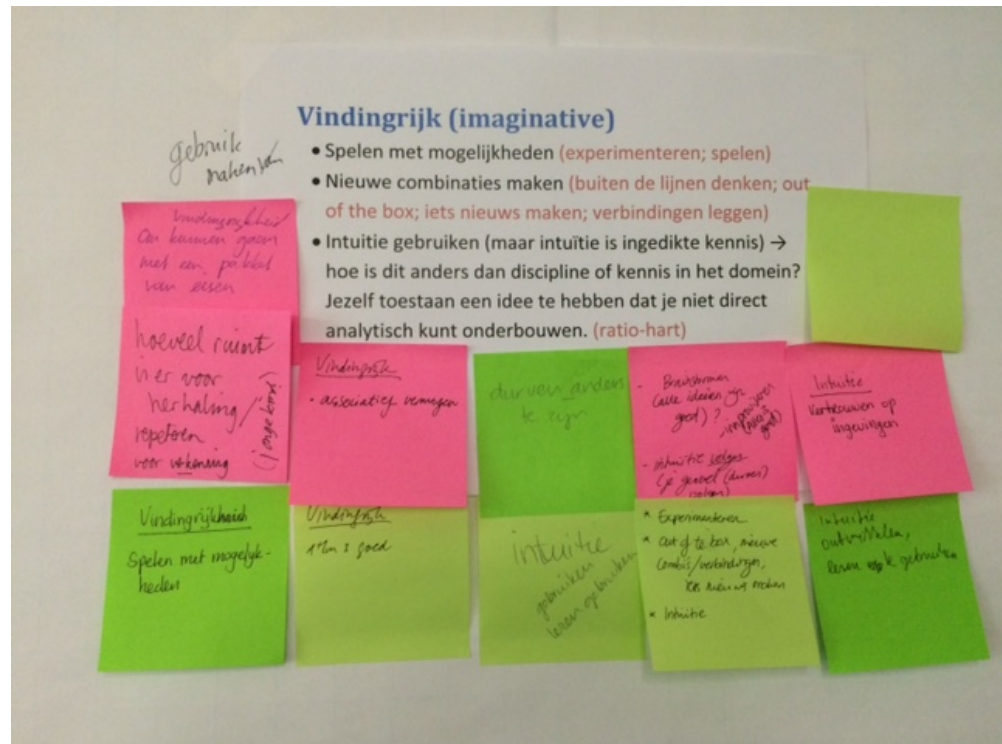 Vindingrijk (imaginative)
• Spelen met mogelijkheden (experimenteren; spelen)
• Nieuwe combinaties maken (buiten de lijnen denken; out
of the box; iets nieuws maken; verbindingen leggen)
• Intuitie gebruiken (maar intuïtie is ingedikte kennis) →
hoe is dit anders dan discipline of kennis in het domein?
Jezelf toestaan een idee te hebben dat je niet direct
analytisch kunt onderbouwen. (ratio-hart)
gebruik
maken van
Vindingrijkheid
kunnen gaan
met een pakket
van eisen
hoeveel ruimt
is er voor
herhaling/
repeteren
voor verkenning
Vindingrijk
• associatief vermogen
durven anders
te zijn
- Brainstormen
(alle ideeën zijn
goed)?
- improviseren
goed)
- intuïtie volgen
(je gevoel (durven)
volgen)
Intuïtie
Vertrouwen op
ingevingen
Vindingrijkheid
Spelen met mogelijk-
heden
Vindingrijk
goed
intuitie
gebruiken
leren gebruiken
* Experimenteren
* Out of te box, nieuwe
combi's/verbindingen,
iets nieuws maken
* Intuïtie
Intuïtie
ontwikkelen,
leren te gebruiken